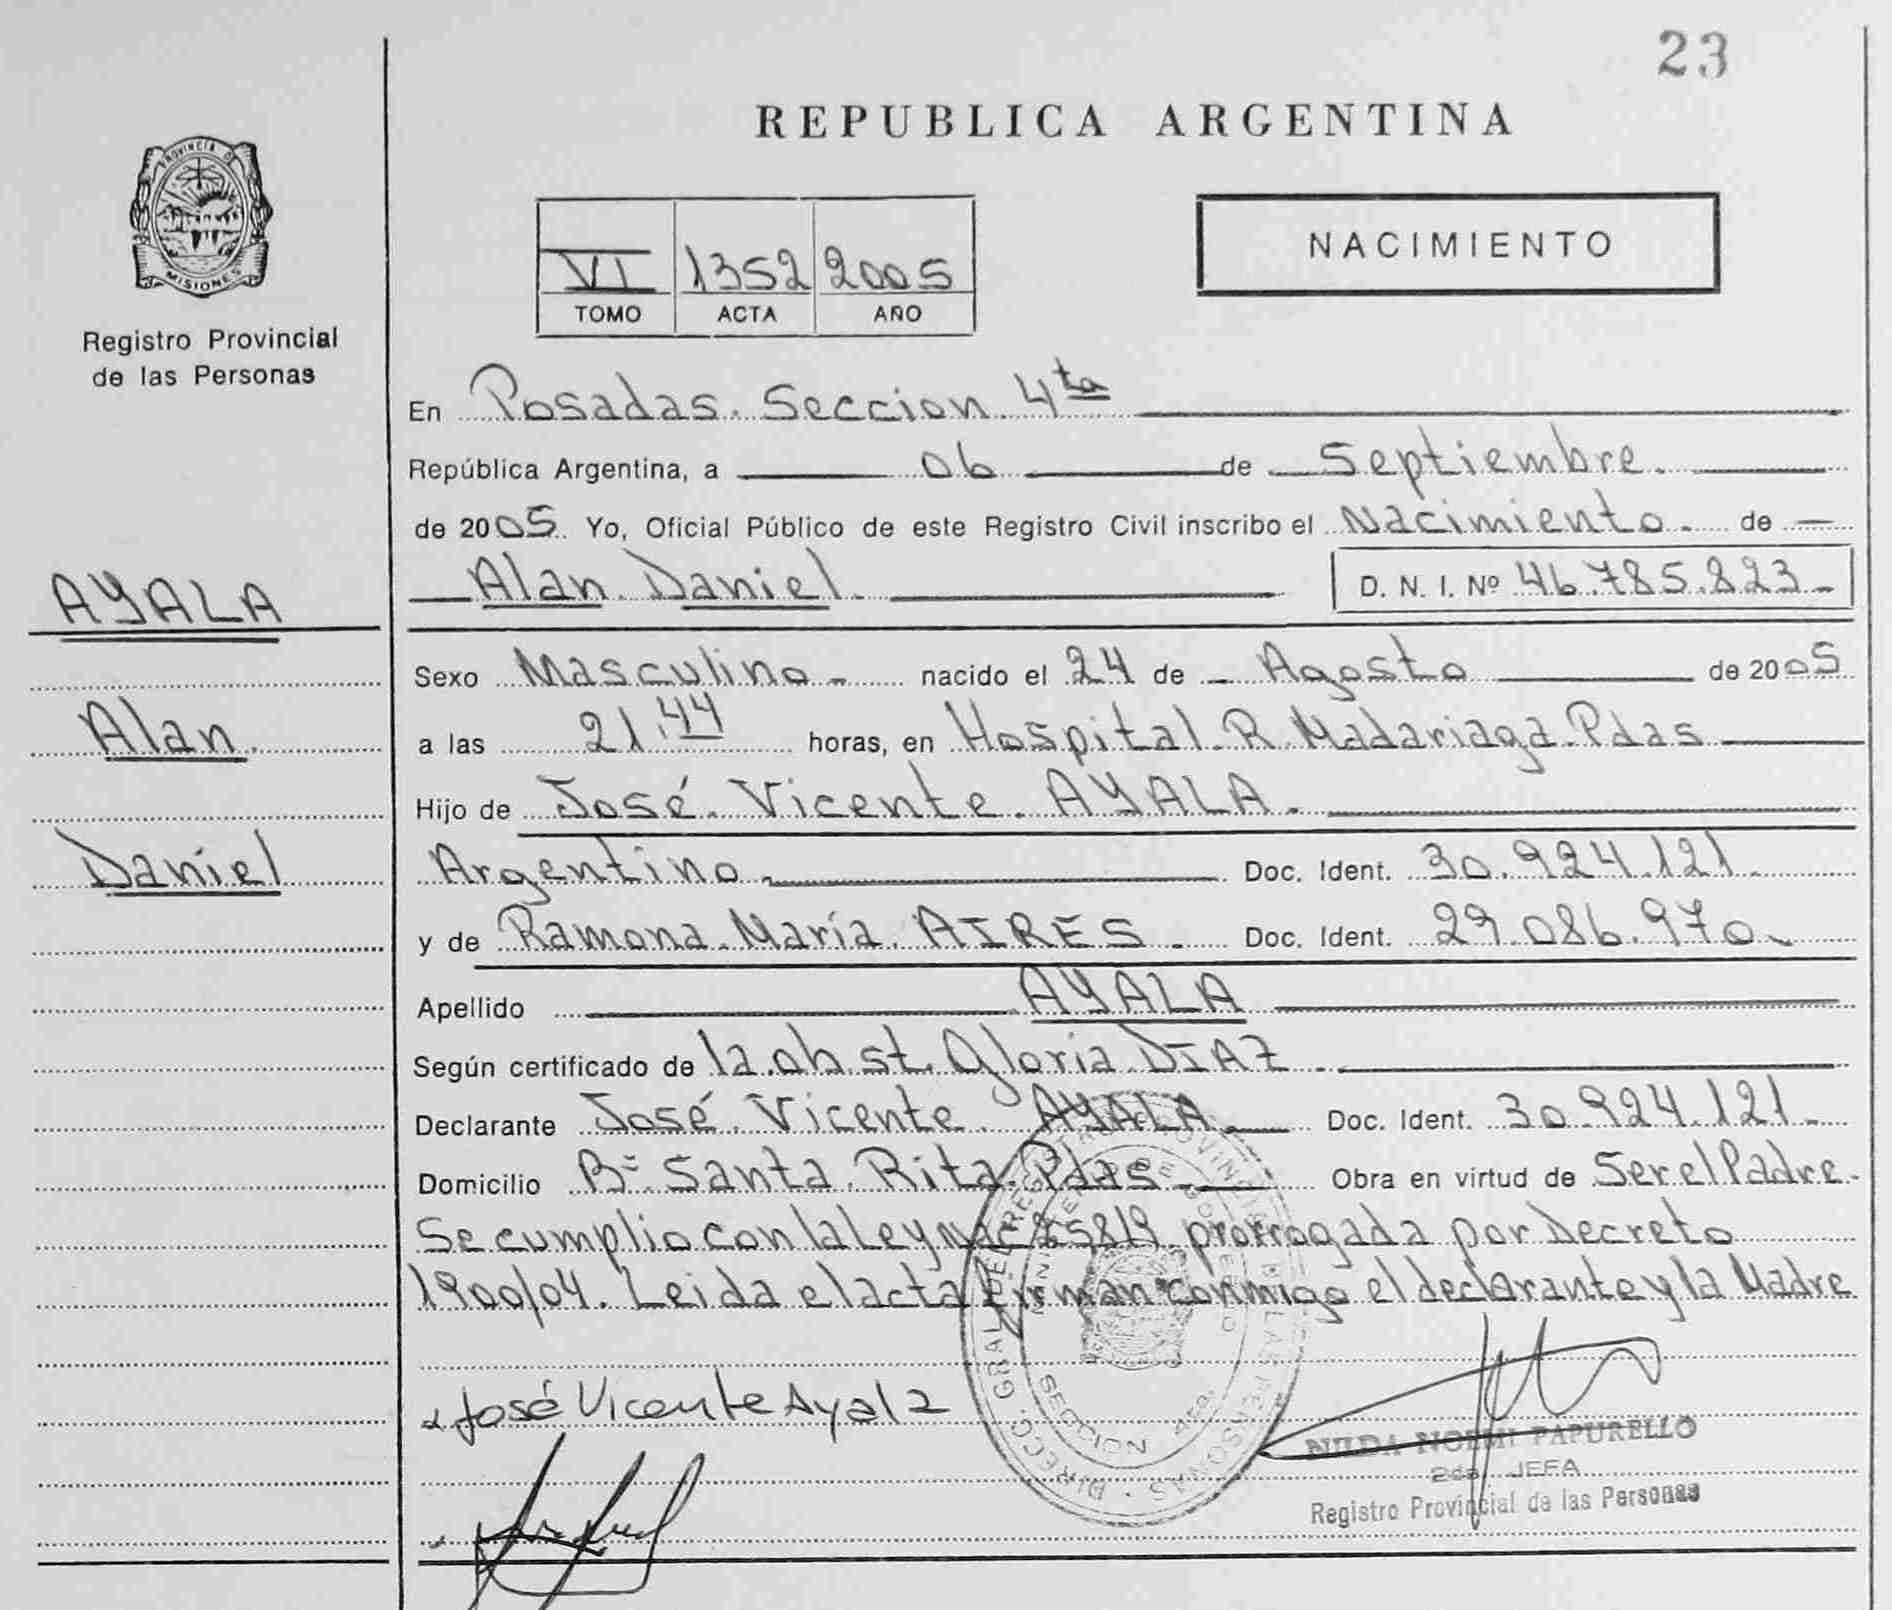 23
REPUBLICA ARGENTINA
PROVINCIA DE
MISIONES
Registro Provincial
de las Personas
VI 1352 2005
TOMO ACTA AÑO
NACIMIENTO
En Posadas. Seccion 4ta
República Argentina, a 06 de Septiembre.
de 2005. Yo, Oficial Público de este Registro Civil inscribo el Nacimiento. de
Alan Daniel. D. N. I. Nº 46.785.823
AYALA
Alan
Daniel
Sexo Masculino nacido el 24 de Agosto de 2005
a las 21.44 horas, en Hospital R. Madariaga Pdas
Hijo de José Vicente AYALA.
Argentino Doc. Ident. 30.924.121.
y de Ramona María AIRES. Doc. Ident. 29.086.970.
Apellido AYALA
Según certificado de la obst. Gloria DIAZ
Declarante José Vicente AYALA Doc. Ident. 30.924.121
Domicilio Bº Santa Rita Pdas Obra en virtud de Ser el Padre.
Se cumplio con la ley nac 25819 prorrogada por Decreto
1900/04. Leida el acta firman conmigo el declarante y la Madre
José Vicente Ayala
NILDA NOEMI PAPURELLO
2da. JEFA
Registro Provincial de las Personas
DIRECC. GRAL. DE REGISTRO PROVINCIAL DE LAS PERSONAS
SECCION 4ta.